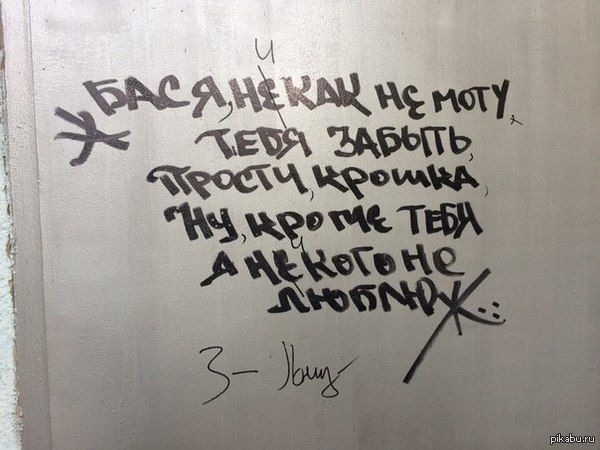 И
БАСЯ, НЕКАК НЕ МОГУ,
ТЕБЯ ЗАБЫТЬ,
ПРОСТИ, КРОШКА,
НУ, КРОМЕ ТЕБЯ
И
Я НЕКОГО НЕ
ЛЮБЛЮ
3-
pikabu.ru